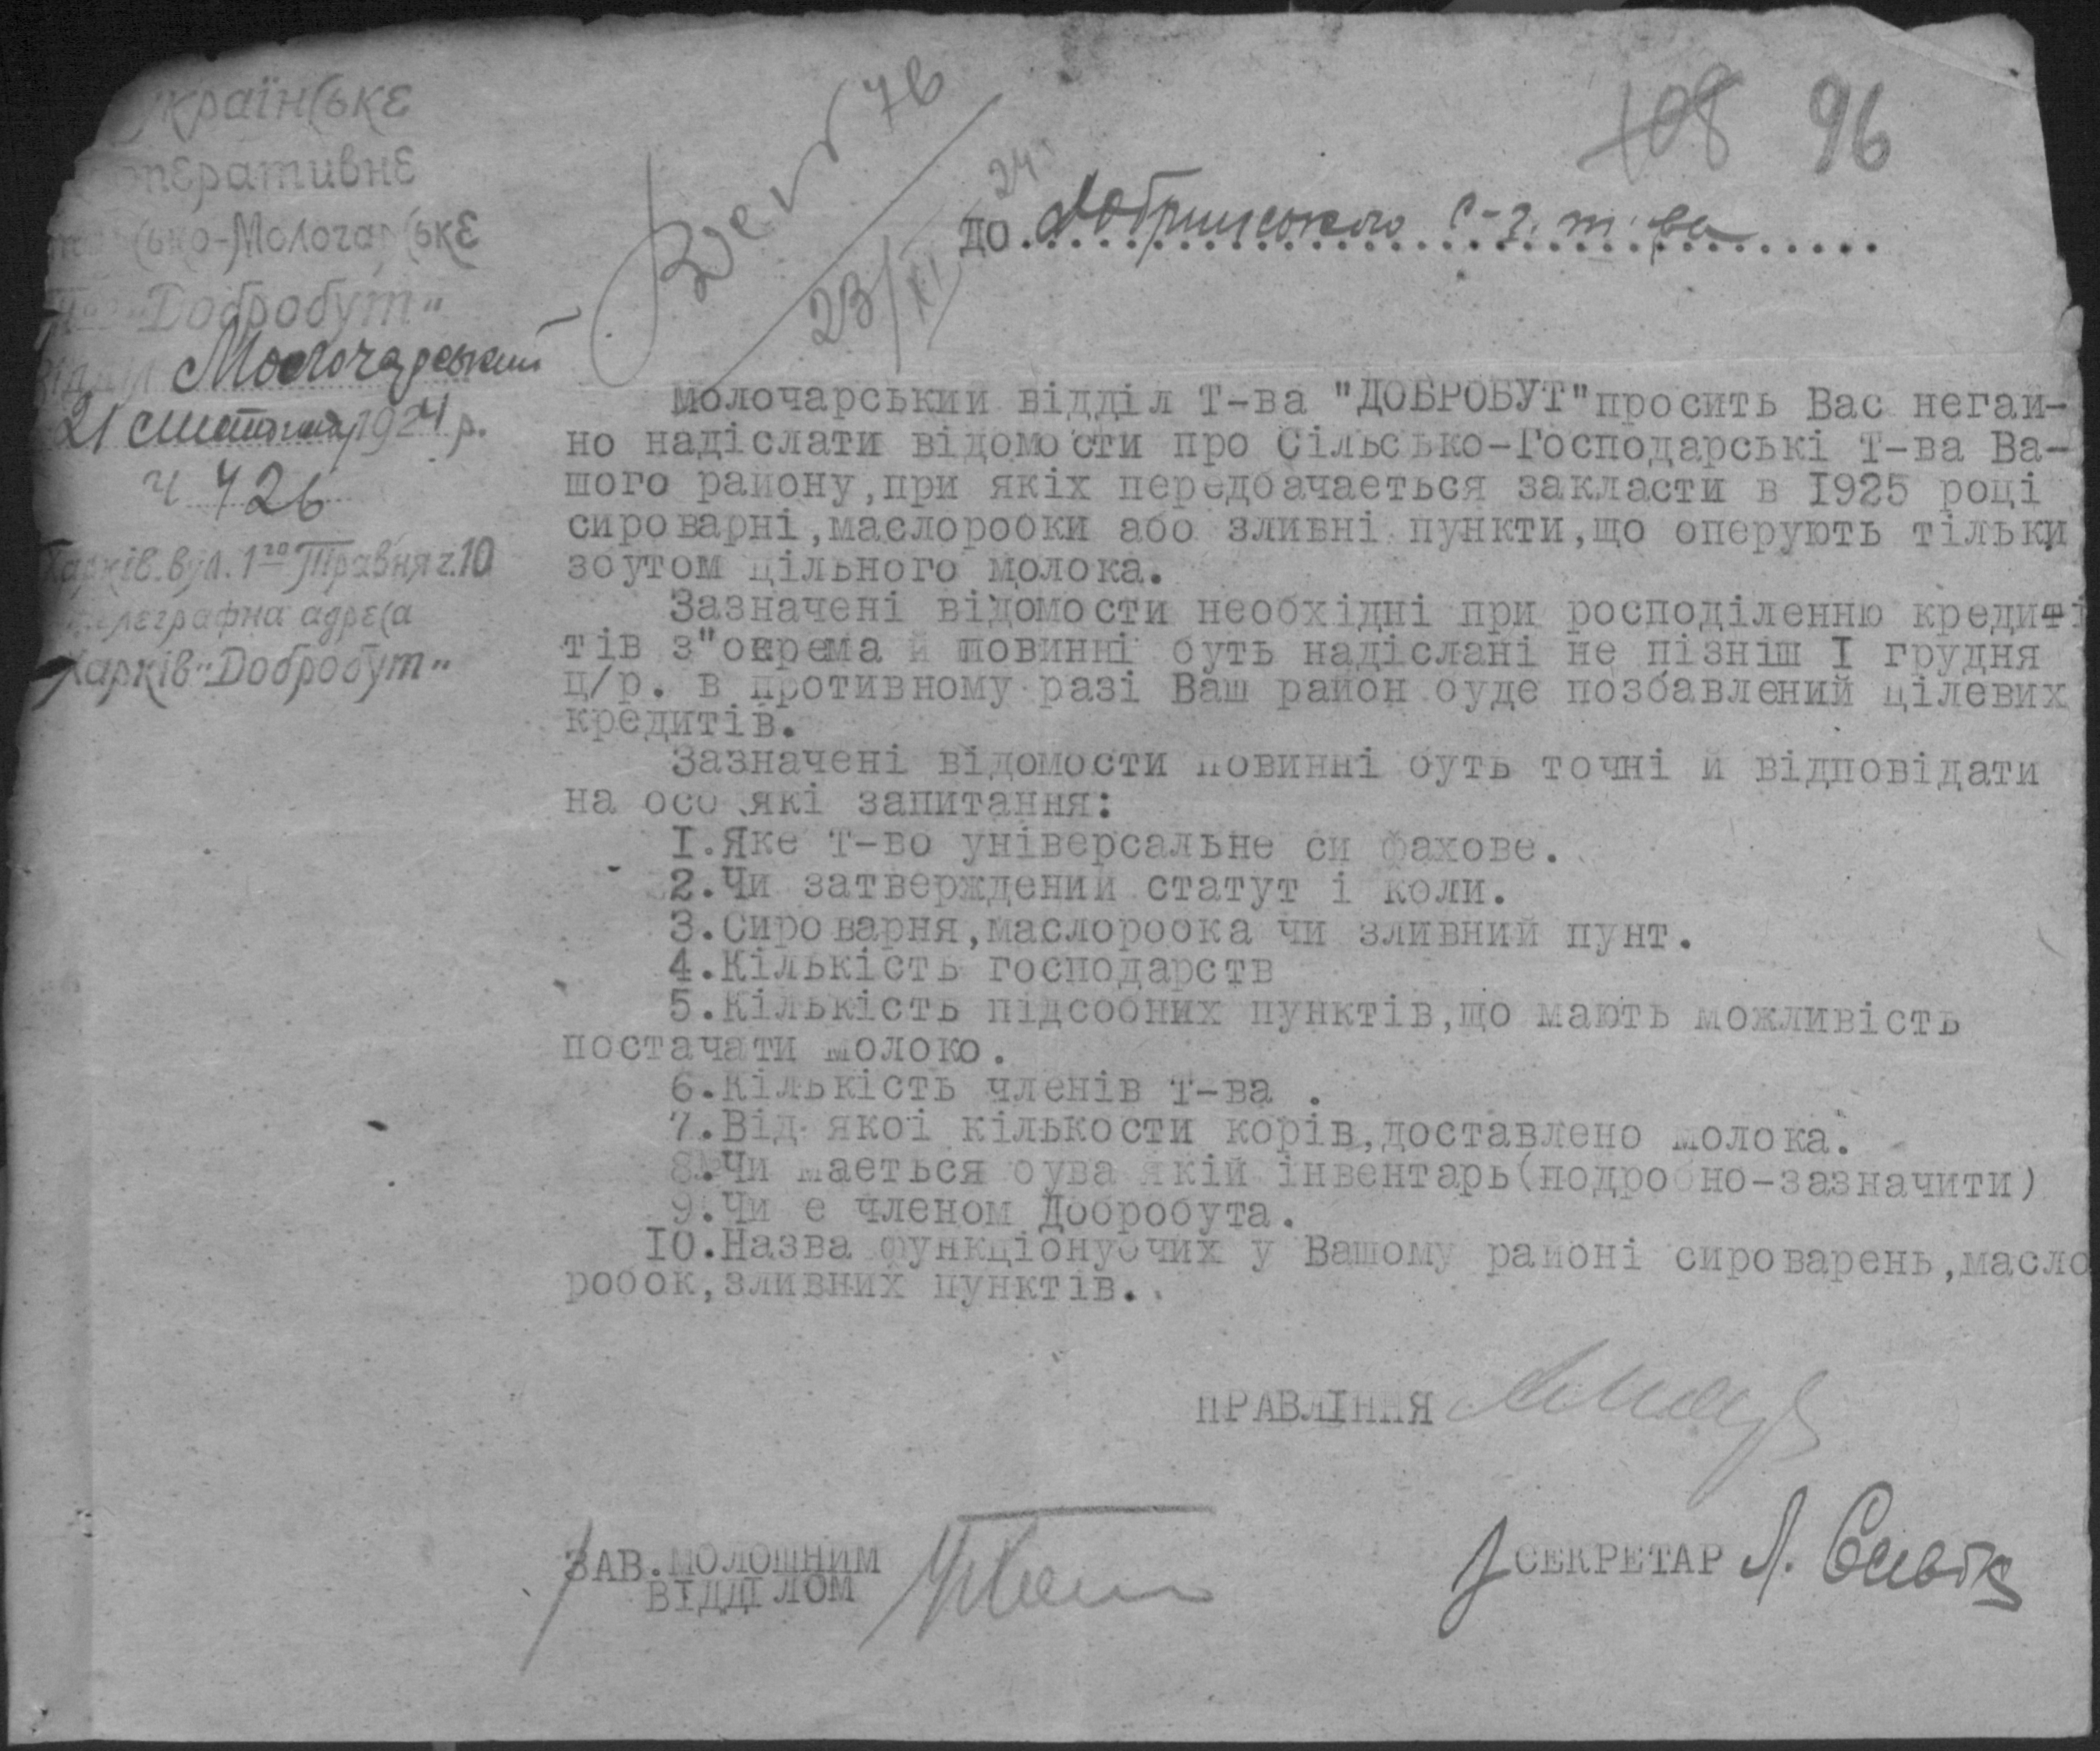 Українське
оперативне
сько-Молочарське
"Добробут"
відділ Молочарський
21 листопада 1924 р.
ч 426
Харків. вул. 1го Травня ч. 10
телеграфна адреса
Харків "Добробут"
76
23/XI 24
108 96
до с-г. т-ва
Молочарський відділ Т-ва "ДОБРОБУТ" просить Вас негай-
но надіслати відомости про Сільсько-Господарські Т-ва Ва-
шого району,при якіх передбачаеться закласти в 1925 році
сироварні,маслоробки або зливні пункти,що оперують тільки
збутом цільного молока.
Зазначені відомости необхідні при росподіленню кредиті
тів з"окрема й повинні буть надіслані не пізніш І грудня
ц/р. в противному разі Ваш район буде позбавлений цілевих
кредитів.
Зазначені відомости повинні буть точні й відповідати
на які запитання:
І.Яке т-во універсальне си фахове.
2.Чи затверждений статут і коли.
3.Сироварня,маслоробка чи зливний пунт.
4.Кількість господарств
5.Кількість підсобних пунктів,що мають можливість
постачати молоко.
6.Кількість членів т-ва .
7.Від якої кількости корів,доставлено молока.
8.Чи маеться бува якій інвентарь(подробно-зазначити)
9.Чи е членом Добробута.
ІО.Назва функціонуючих у Вашому районі сироварень,масло
робок,зливних пунктів..
ПРАВЛІННЯ
ЗАВ.МОЛОШНИМ
ВІДДІЛОМ
СЕКРЕТАР Л.